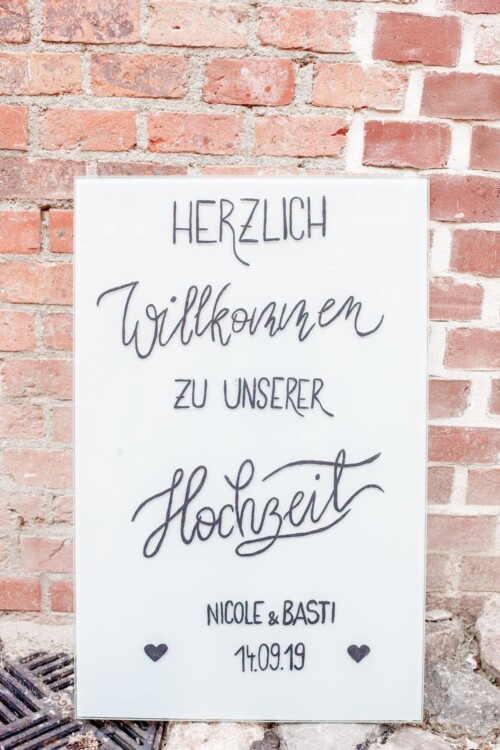 HERZLICH
Willkommen
ZU UNSERER
Hochzeit
NICOLE & BASTI
14.09.19